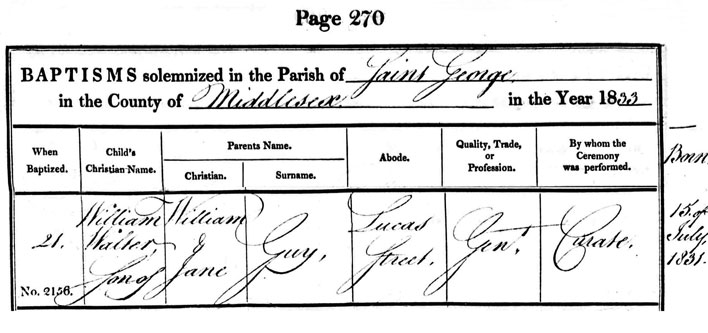 Page 270
BAPTISMS solemnized in the Parish of Saint George
in the County of Middlesex in the Year 1833
When Baptized.
Child's Christian Name.
Parents Name.
Christian.
Surname.
Abode.
Quality, Trade, or Profession.
By whom the Ceremony was performed.
Born
21.
William Walter, Son of
William & Jane
Guy,
Lucas Street.
Gent.
Curate.
15. of July, 1831.
No. 2156.